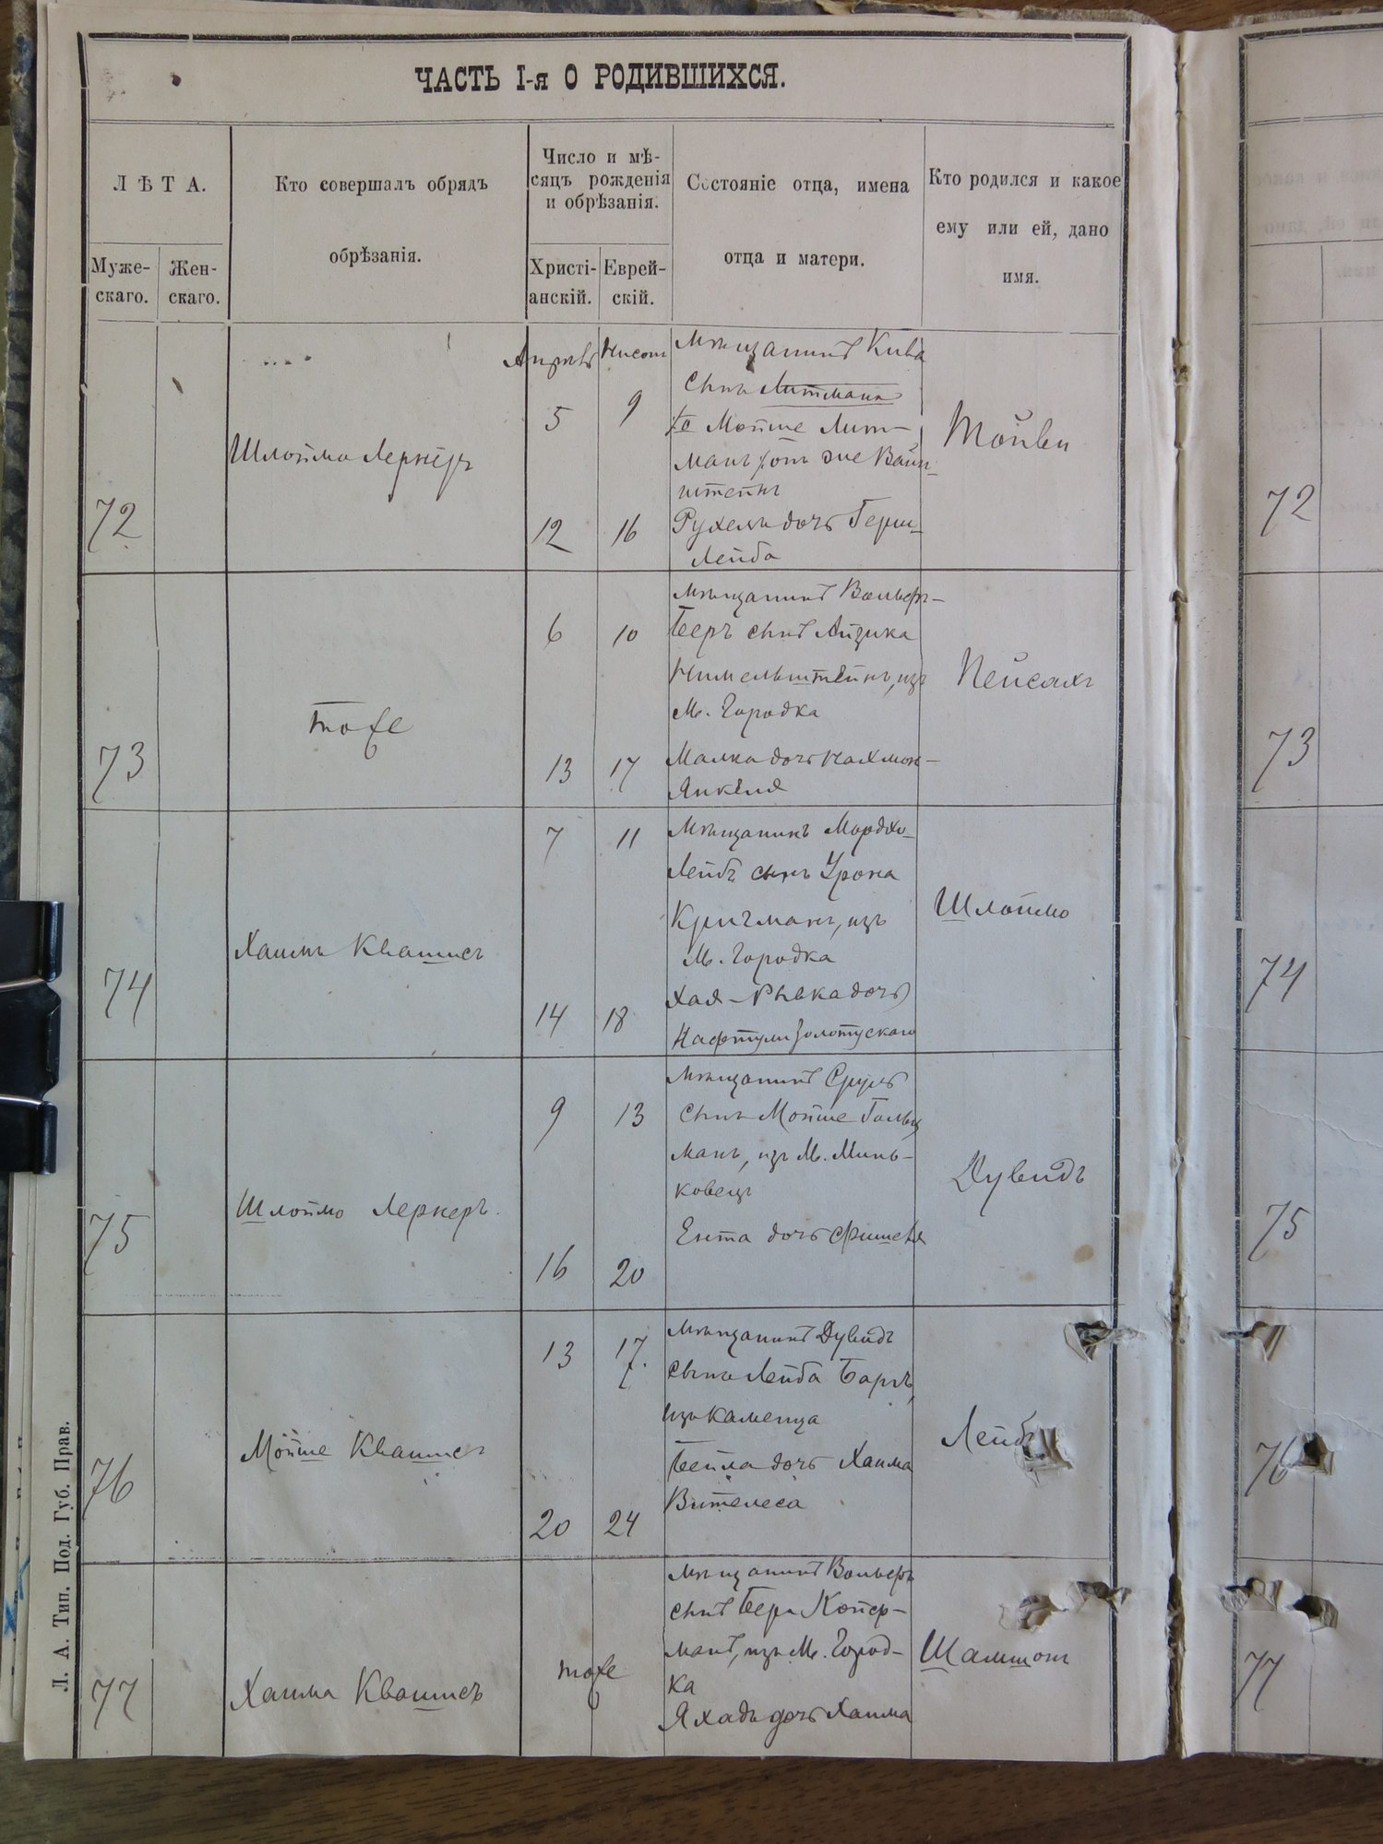 ЧАСТЬ I-я О РОДИВШИХСЯ.
ЛѢТА.
Муже-
скаго.
Жен-
скаго.
Кто совершалъ обрядъ
обрѣзанія.
Число и мѣ-
сяцъ рожденія
и обрѣзанія.
Христі-
анскій.
Еврей-
скій.
Состояніе отца, имена
отца и матери.
Кто родился и какое
ему или ей, дано
имя.
72
Шлойма Леркеръ
Апрѣль
5
12
9
16
Мѣщанинъ Кива
сынъ Литмана
Мойше Лит-
манъ
штейнъ
Рухель дочь Герш-
Лейба
72
73
тоже
6
13
10
17
Мѣщанинъ Вольфъ-
Беръ сынъ Айзика
изъ
М. Городка
Малка дочь Нахмон-
Янкеля
Пейсахъ
73
74
Хаимъ Квашисъ
7
14
11
18
Мѣщанинъ Мордхо-
Лейбъ сынъ Урона
Кричманъ, изъ
М. Городка
Хая-Рывка дочь
Нафтули Золотускаго
Шлоймо
74
75
Шлоймо Леркеръ.
9
16
13
20
Мѣщанинъ Сруль
сынъ Мойше Гольц
манъ, изъ М. Минь-
ковецъ
Ента дочь Фишеля
Дувидъ
75
76
Мойше Квашисъ
13
20
17.
24
Мѣщанинъ Дувидъ
сынъ Лейба Баръ,
изъ Каменца
Бейла дочь Хаима
Вителеса
Лейбъ
76
77
Хаима Квашисъ
тоже
Мѣщанинъ Вольфъ
сынъ Бера
манъ, изъ М. Город-
ка
Яхадъ дочь Хаима
Шамшонъ
77
Л. А. Тип. Под. Губ. Прав.